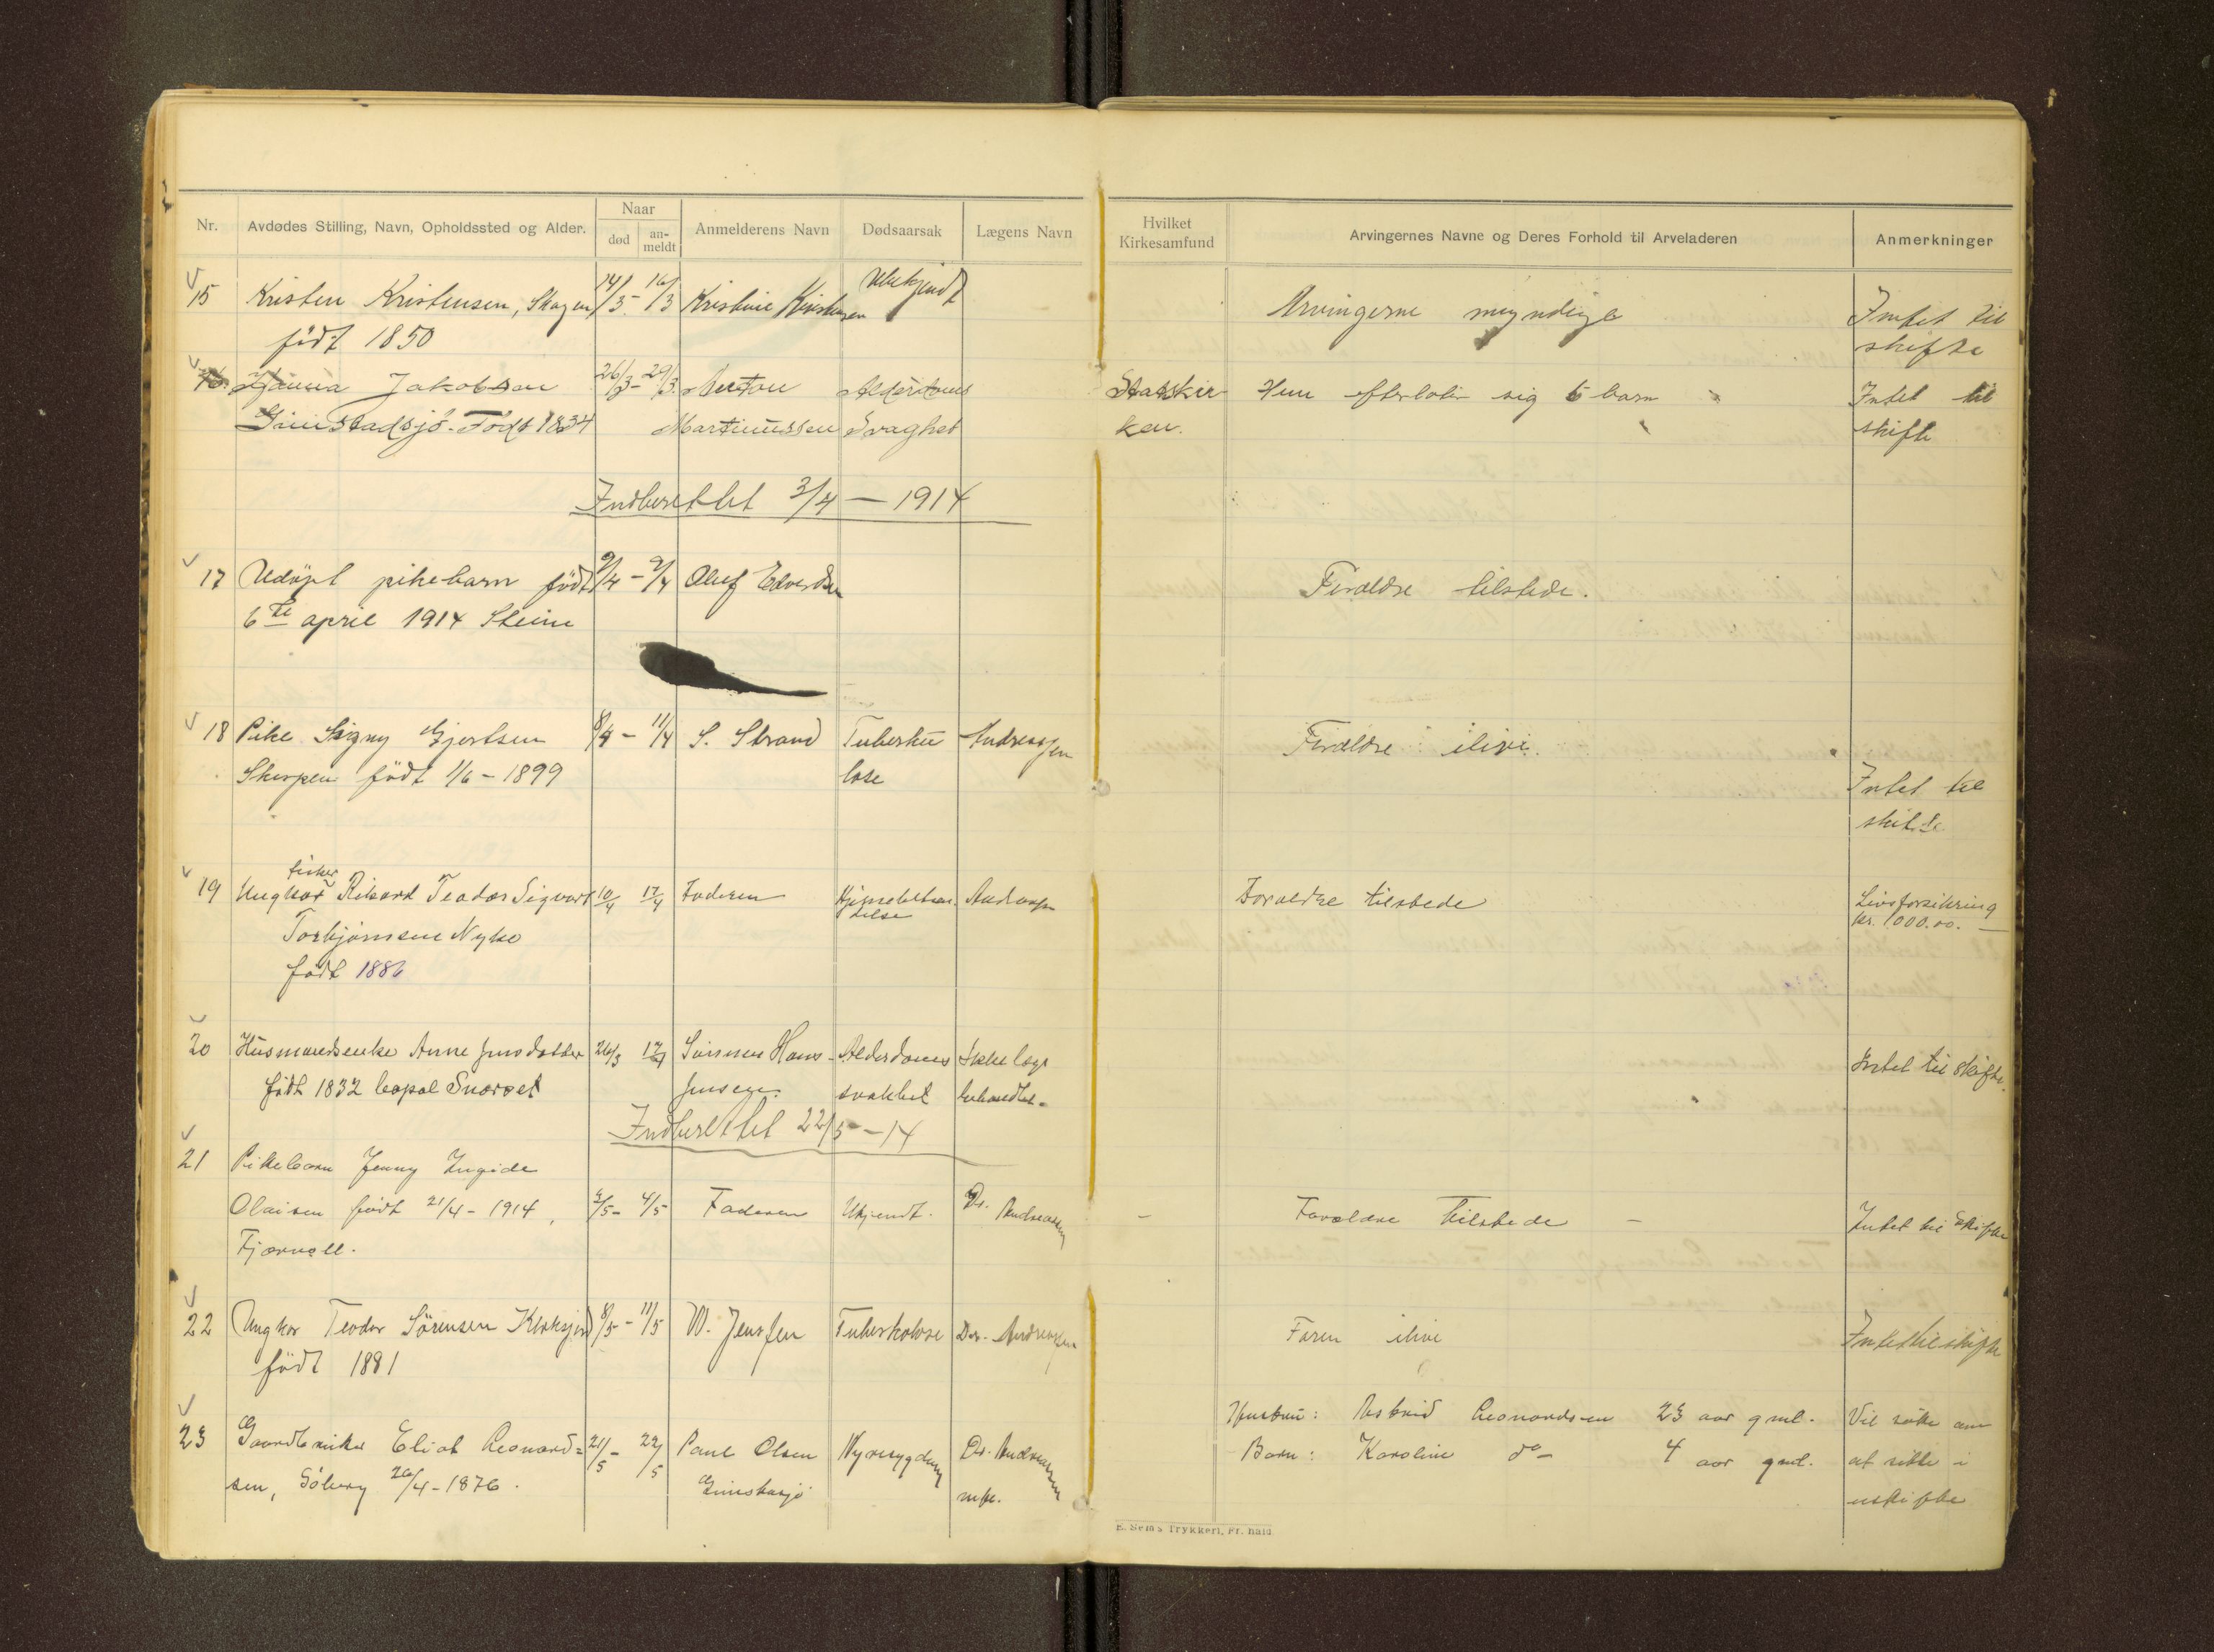 Nr.
Avdødes Stilling, Navn, Opholdssted og Alder.
Naar
død
an-
meldt
Anmelderens Navn
Dødsaarsak
Lægens Navn
Hvilket
Kirkesamfund
Arvingernes Navne og Deres Forhold til Arveladeren
Anmerkninger
15 Kristen Kristensen, Skagen 14/3 - 16/3 Kristine Kristensen Ubekjendt Arvingerne myndige Intet til
født 1850 skifte
16. Jakobsen 26/3 - 29/3 Anton Alderdoms Statskir- Hun efterlater sig 6 barn Intet til
Grimstadsjö. Født 1834 Martinussen Svaghet ken. skifte
Indberettet 3/4 - 1914
17 Udøpt pikebarn født 9/4 - 9/4 Oluf Edvardsen Foraldre tilstede.
6te april 1914 Steine
18 Pike Signy Gjertsen 8/4 - 11/4 S. Strand Tuberku Andreassen Foraldre ilive.
Skarpen født 1/6 - 1899 lose Intet til
skifte
fisker
19 Ungkar Rikard Teodor Sigvart 10/4 17/4 Faderen Andreassen Foraldre tilstede Livsforsikring
Torbjørnsen Nyke kr. 1000.00.
født 1886
20 Husmandsenke Anne Jensdatter 26/3 17/4 Sønnen Hans Alderdoms Ikke læge Intet til skifte.
født 1832 Jensen. svakhet behandlet.
Indberettet 22/5 - 14
21 Pikebarn Jenny Ingide
Olaisen født 21/4 - 1914, 4/5 Faderen Ukjendt. Dr. Andreassen - Foraldre tilstede - Intet til Skifte
Fjærvoll.
22 Ungkar Teodor Sörensen 8/5 - 11/5 W. Jenssen Tuberkolose Dr. Andreassen Faren ilive Intet til skifte
født 1881
23 Gaardbruker Eliot Leonard= 21/5 - 22/5 Paul Olsen Nyresygdom Dr. Andreassen Hustru: Astrid Leonardsen 23 aar gml. Vil søke om
sen, Söberg 26/4 - 1876. Barn: Karoline do - 4 aar gml. at sitte i
uskifte
E. Sem's Trykkeri, Fr.hald